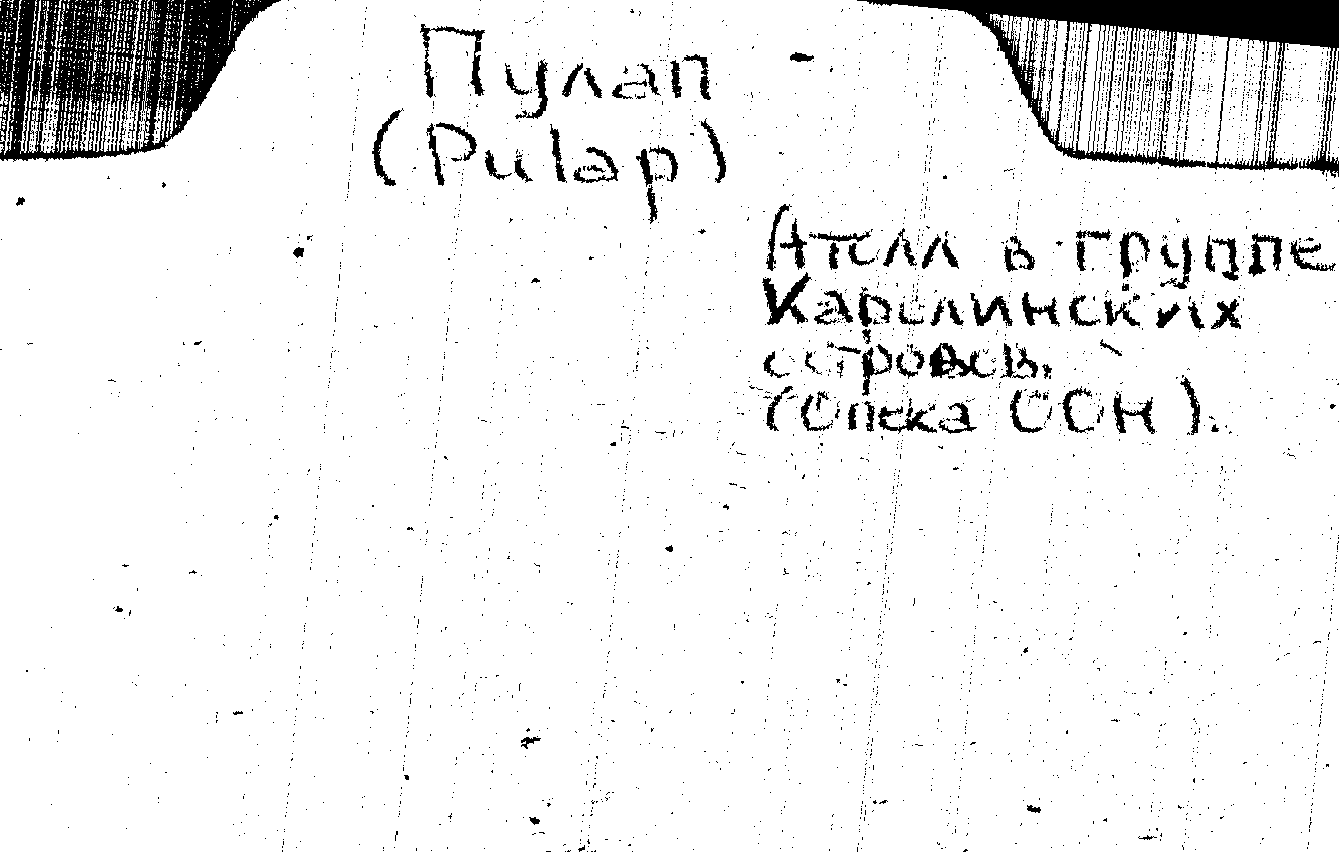 Пулап -
(Pulap)
Атолл в группе
Каролинских
островов.
(Опека ООН).